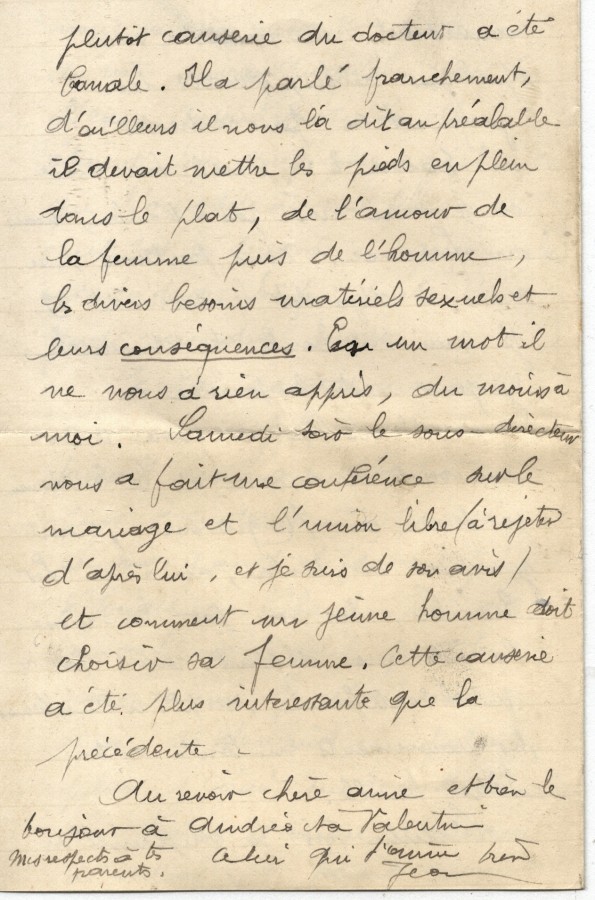 plutôt causerie du docteur a été
banale. Il a parlé franchement,
d'ailleurs il nous l'a dit au préalable
il devait mettre les pieds en plein
dans le plat, de l'amour de
la femme puis de l'homme,
les divers besoins matériels sexuels et
leurs conséquences. En un mot il
ne nous a rien appris, du moins à
moi. Samedi soir le sous-directeur
nous a fait une conférence sur le
mariage et l'union libre (à rejeter
d'après lui, et je suis de son avis)
et comment un jeune homme doit
choisir sa femme. Cette causerie
a été plus interessante que la
précédente.
Au revoir chère amie et bien le
bonjour à Andrée et à Valentin
Mes respects à tes parents.
Celui qui t'aime bien
Jean